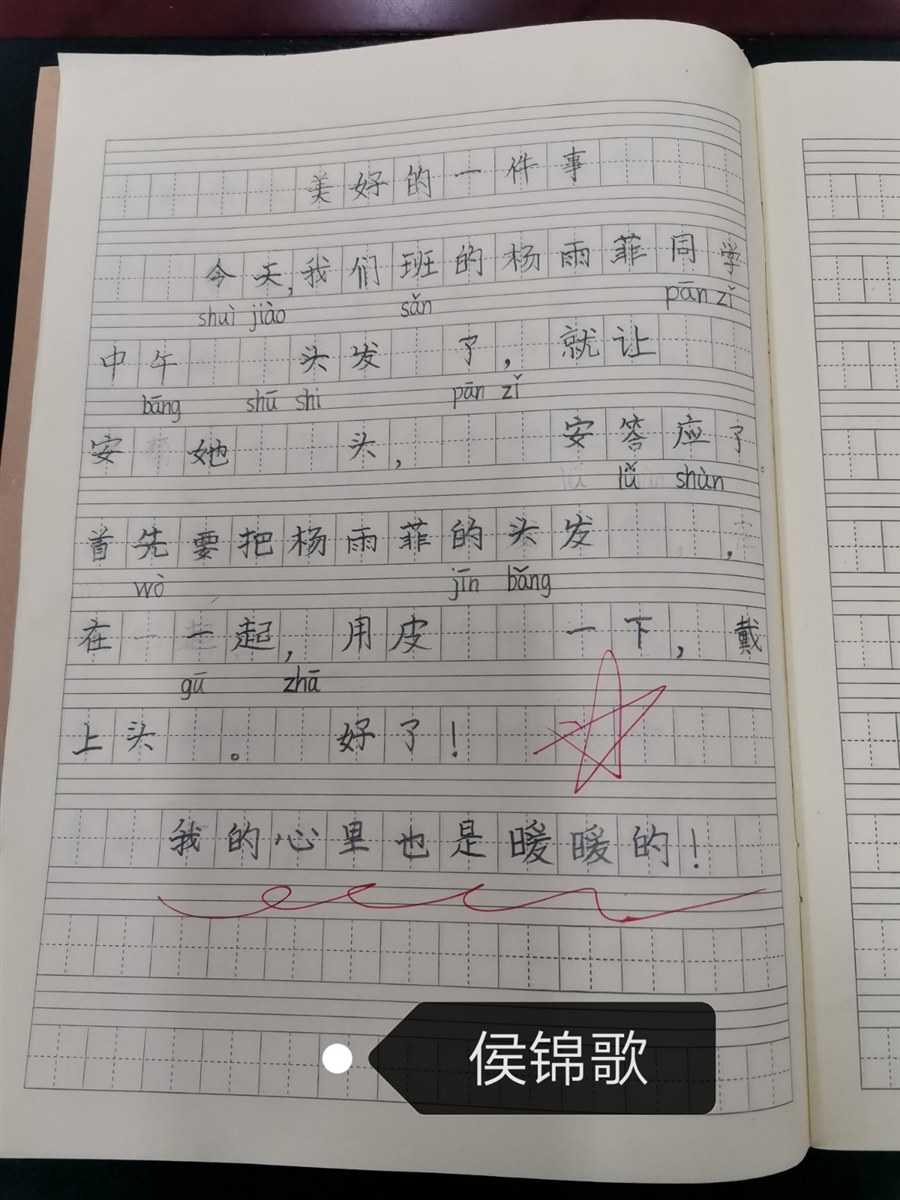 美好的一件事
今天,我们班的杨雨菲同学
shuì jiào sǎn pān zǐ
中午 头发 了,就让
bāng shū shi pān zǐ
安 她 头, 安答应了。
lǚ shùn
首先要把杨雨菲的头发 ,
wò jīn bǎng
在一起,用皮 一下,戴
gū zhā
上头 。 好了!
我的心里也是暖暖的!
侯锦歌